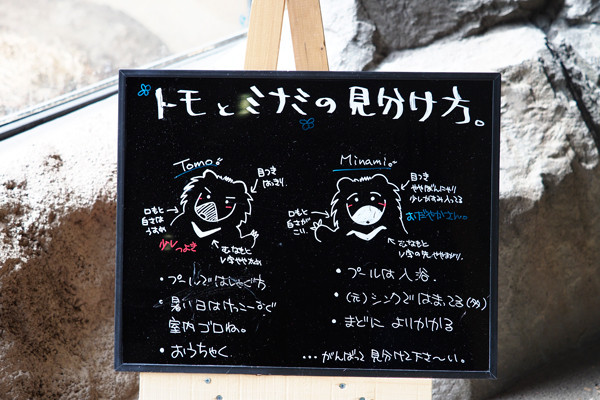 トモとミナミの見分け方。
Tomo
目つき
はっきり.
口もと
白さは
うすめ
少しつよき
むなもと
V字やや太め
・プールではしゃぐ方
・暑い日はけっこーすぐ
室内ゴロね。
・おうちゃく
Minami
目つき
ややぼんにゃり
少したるみ入ってる
おだやかさん。
口もと
白さが
こい.
むなもと
V字の先ややおり.
・プールは入浴.
・(元)シンクではまってる(多)
・まどに よりかかる
…がんばって見分けて下さ〜い。